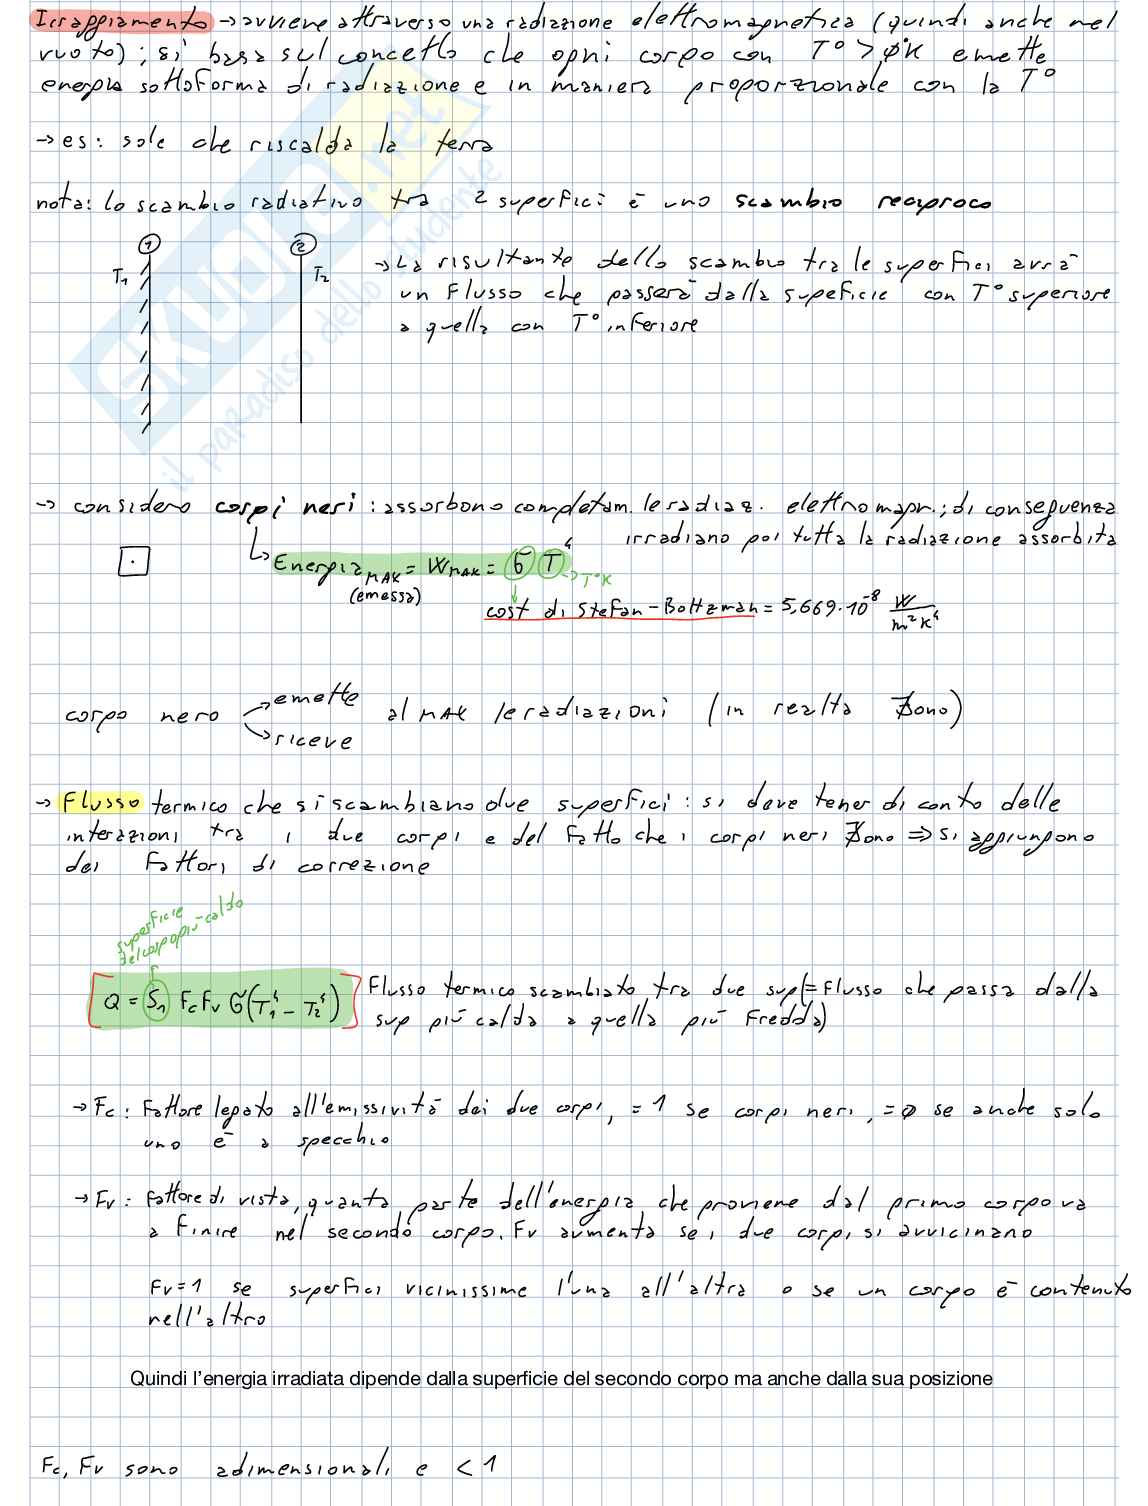 Irraggiamento → avviene attraverso una radiazione elettromagnetica (quindi anche nel
vuoto) ; si basa sul concetto che ogni corpo con T° > ø°K emette
energia sottoforma di radiazione e in maniera proporzionale con la T°
→ es: sole che riscalda la terra
nota: lo scambio radiativo tra 2 superfici è uno scambio reciproco
1 2
T₁ T₂
→ La risultante dello scambio tra le superfici avrà
un flusso che passerà dalla supeficie con T° superiore
a quella con T° inferiore
SKUOLA.net
il paradiso dello studente
→ considero corpi neri : assorbono completam. le radiaz. elettromagn.; di conseguenza
irradiano poi tutta la radiazione assorbita
↳ Energia MAX = W MAX = σ T⁴ → T°K
(emessa)
cost di Stefan-Boltzman = 5,669·10⁻⁸ W/m²K⁴
corpo nero → emette
→ riceve
al MAX le radiazioni (in realtà ∄ono)
→ Flusso termico che si scambiano due superfici : si deve tener di conto delle
interazioni tra i due corpi e del fatto che i corpi neri ∄ono ⇒ si aggiungono
dei fattori di correzione
superficie
del corpo più caldo
[Q = S₁ Fc Fv σ(T₁⁴ − T₂⁴)] Flusso termico scambiato tra due sup (= flusso che passa dalla
sup più calda a quella più fredda)
→ Fc : Fattore legato all'emissività dei due corpi, = 1 se corpi neri, = ø se anche solo
uno è a specchio
→ Fv : fattore di vista, quanta parte dell'energia che proviene dal primo corpo va
a finire nel secondo corpo. Fv aumenta se i due corpi si avvicinano
Fv = 1 se superfici vicinissime l'una all'altra o se un corpo è contenuto
nell'altro
Quindi l'energia irradiata dipende dalla superficie del secondo corpo ma anche dalla sua posizione
Fc, Fv sono adimensionali e < 1